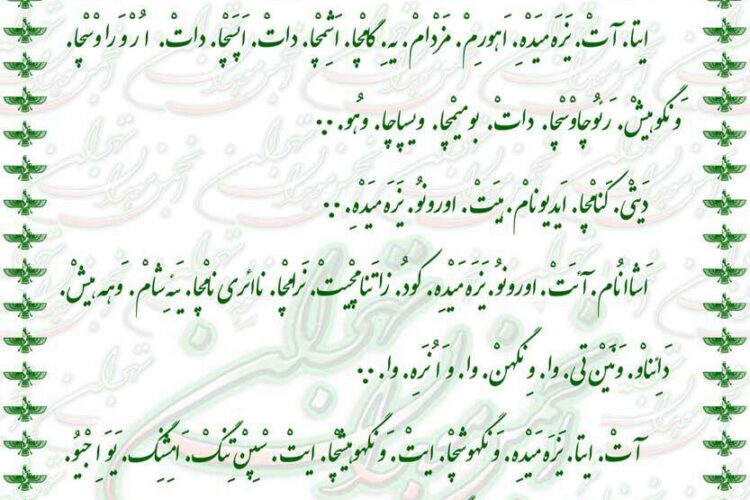 ایتا. آتْ. یَزَه مَیدِه. اَهورِمْ. مَزْدامْ. یِه. گامْچا. اَشِمْچا. داتْ. اَپَسْچا. داتْ. اُرْوَراوسْچا.
وَنگوهیشْ. رَئوچاوْسْچا. داتْ. بومیمْچا. ویسپاچا. وُهو.
دَیتی. کَنامْچا. اَیدیونامْ. هیَتْ. اورونو. یَزَه مَیدِه.
اَشااُنام. آئَتْ. اورونو. یَزَه مَیدِه. کودُ. زاتَنامْچیتْ. نَرامْچا. نائری نامْچا. یَئِشامْ. وَهه هیشْ.
دَاِناو. وَنَیْن تی. وا. وِنگهنْ. وا. وَاُنَرِه. وا.
آتْ. ایتا. یَزَه مَیدِه. وَنگهوشْچا. ایتْ. وَنگهوهیشْچا. ایتْ. سْپِنْ تِنگْ. اَمِشِنگْ. یَوَاِجْیو.
انجمن موبدان تهران